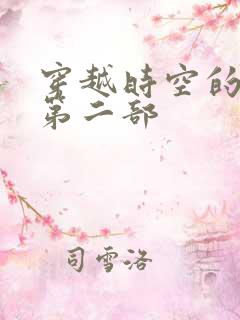 穿越時空的
第二部
司雪洛